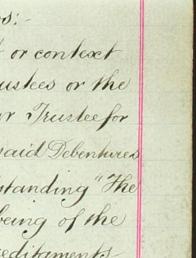 s:-
t or context
rustees or the
or Trustee for
said Debentures
standing "The
being of the
reditaments